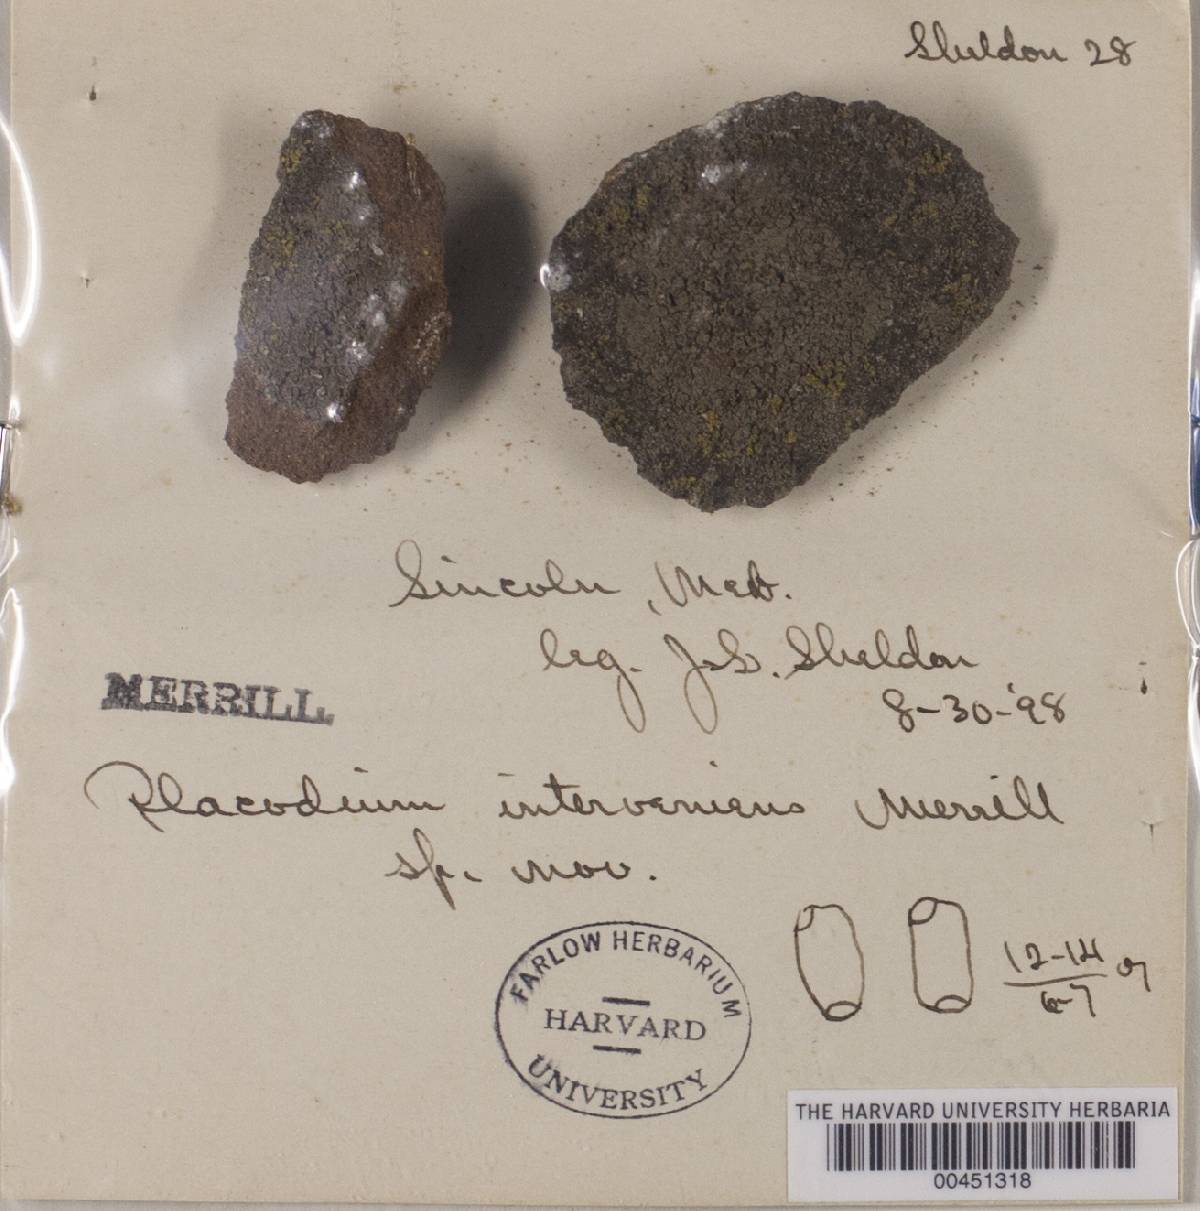 Sheldon 28
Lincoln, Neb.
leg. J. L. Sheldon
8-30-'98
MERRILL.
Placodium interveniens Merrill
sp. nov.
12-14
6-7
FARLOW HERBARIUM
HARVARD
UNIVERSITY
THE HARVARD UNIVERSITY HERBARIA
00451318